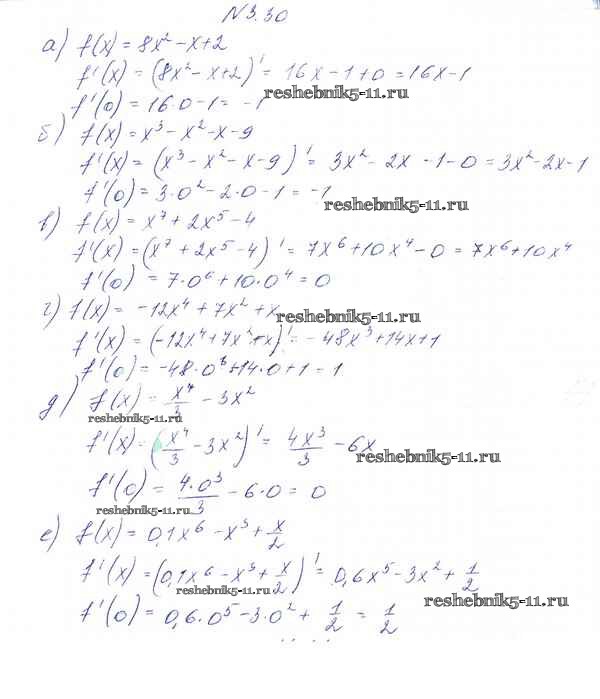 N 3.30
а) f(x) = 8x² - x + 2
f'(x) = (8x² - x + 2)' = 16x - 1 + 0 = 16x - 1
reshebnik5-11.ru
f'(0) = 16·0 - 1 = -1
б) f(x) = x³ - x² - x - 9
f'(x) = (x³ - x² - x - 9)' = 3x² - 2x - 1 - 0 = 3x² - 2x - 1
f'(0) = 3·0² - 2·0 - 1 = -1
reshebnik5-11.ru
в) f(x) = x⁷ + 2x⁵ - 4
f'(x) = (x⁷ + 2x⁵ - 4)' = 7x⁶ + 10x⁴ - 0 = 7x⁶ + 10x⁴
f'(0) = 7·0⁶ + 10·0⁴ = 0
г) f(x) = -12x⁴ + 7x² + x
reshebnik5-11.ru
f'(x) = (-12x⁴ + 7x² + x)' = -48x³ + 14x + 1
f'(0) = -48·0³ + 14·0 + 1 = 1
д) f(x) = x⁴/3 - 3x²
reshebnik5-11.ru
f'(x) = (x⁴/3 - 3x²)' = 4x³/3 - 6x
reshebnik5-11.ru
f'(0) = 4·0³/3 - 6·0 = 0
reshebnik5-11.ru
е) f(x) = 0,1x⁶ - x³ + x/2
f'(x) = (0,1x⁶ - x³ + x/2)' = 0,6x⁵ - 3x² + 1/2
reshebnik5-11.ru
reshebnik5-11.ru
f'(0) = 0,6·0⁵ - 3·0² + 1/2 = 1/2